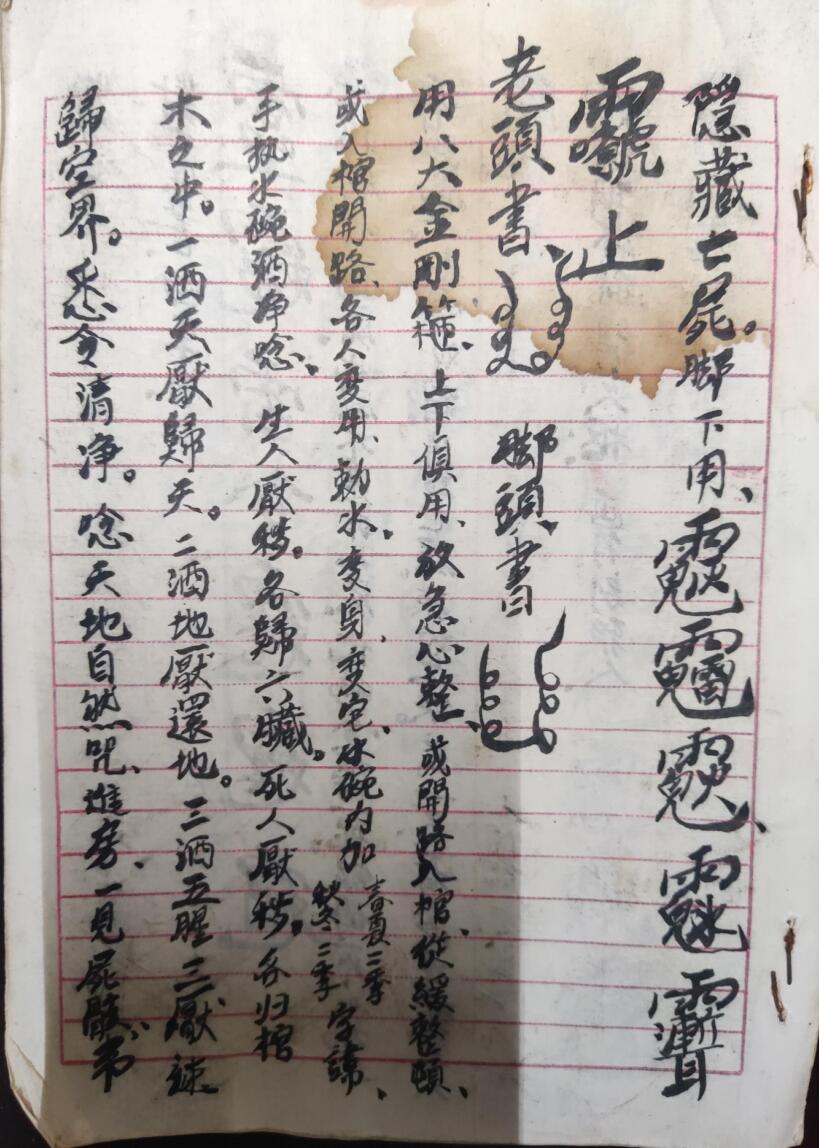 隱藏亡屍。脚下用、
上
老頭書、 脚頭書
用八大金剛箍、上下俱用、放急心整、或開路入棺、從緩整頓、
或入棺開路、各人变用、勅水、变身、变宅、水碗内加 春夏二季 秋冬二季 字諱、
手执水碗洒净唸、生人厭穢。各歸六臟。死人厭穢。各归棺
木之中。一洒天厭歸天。二洒地厭還地。三洒五腥三厭速
歸空界。悉令清净。唸天地自然咒、進房、一見屍骸、